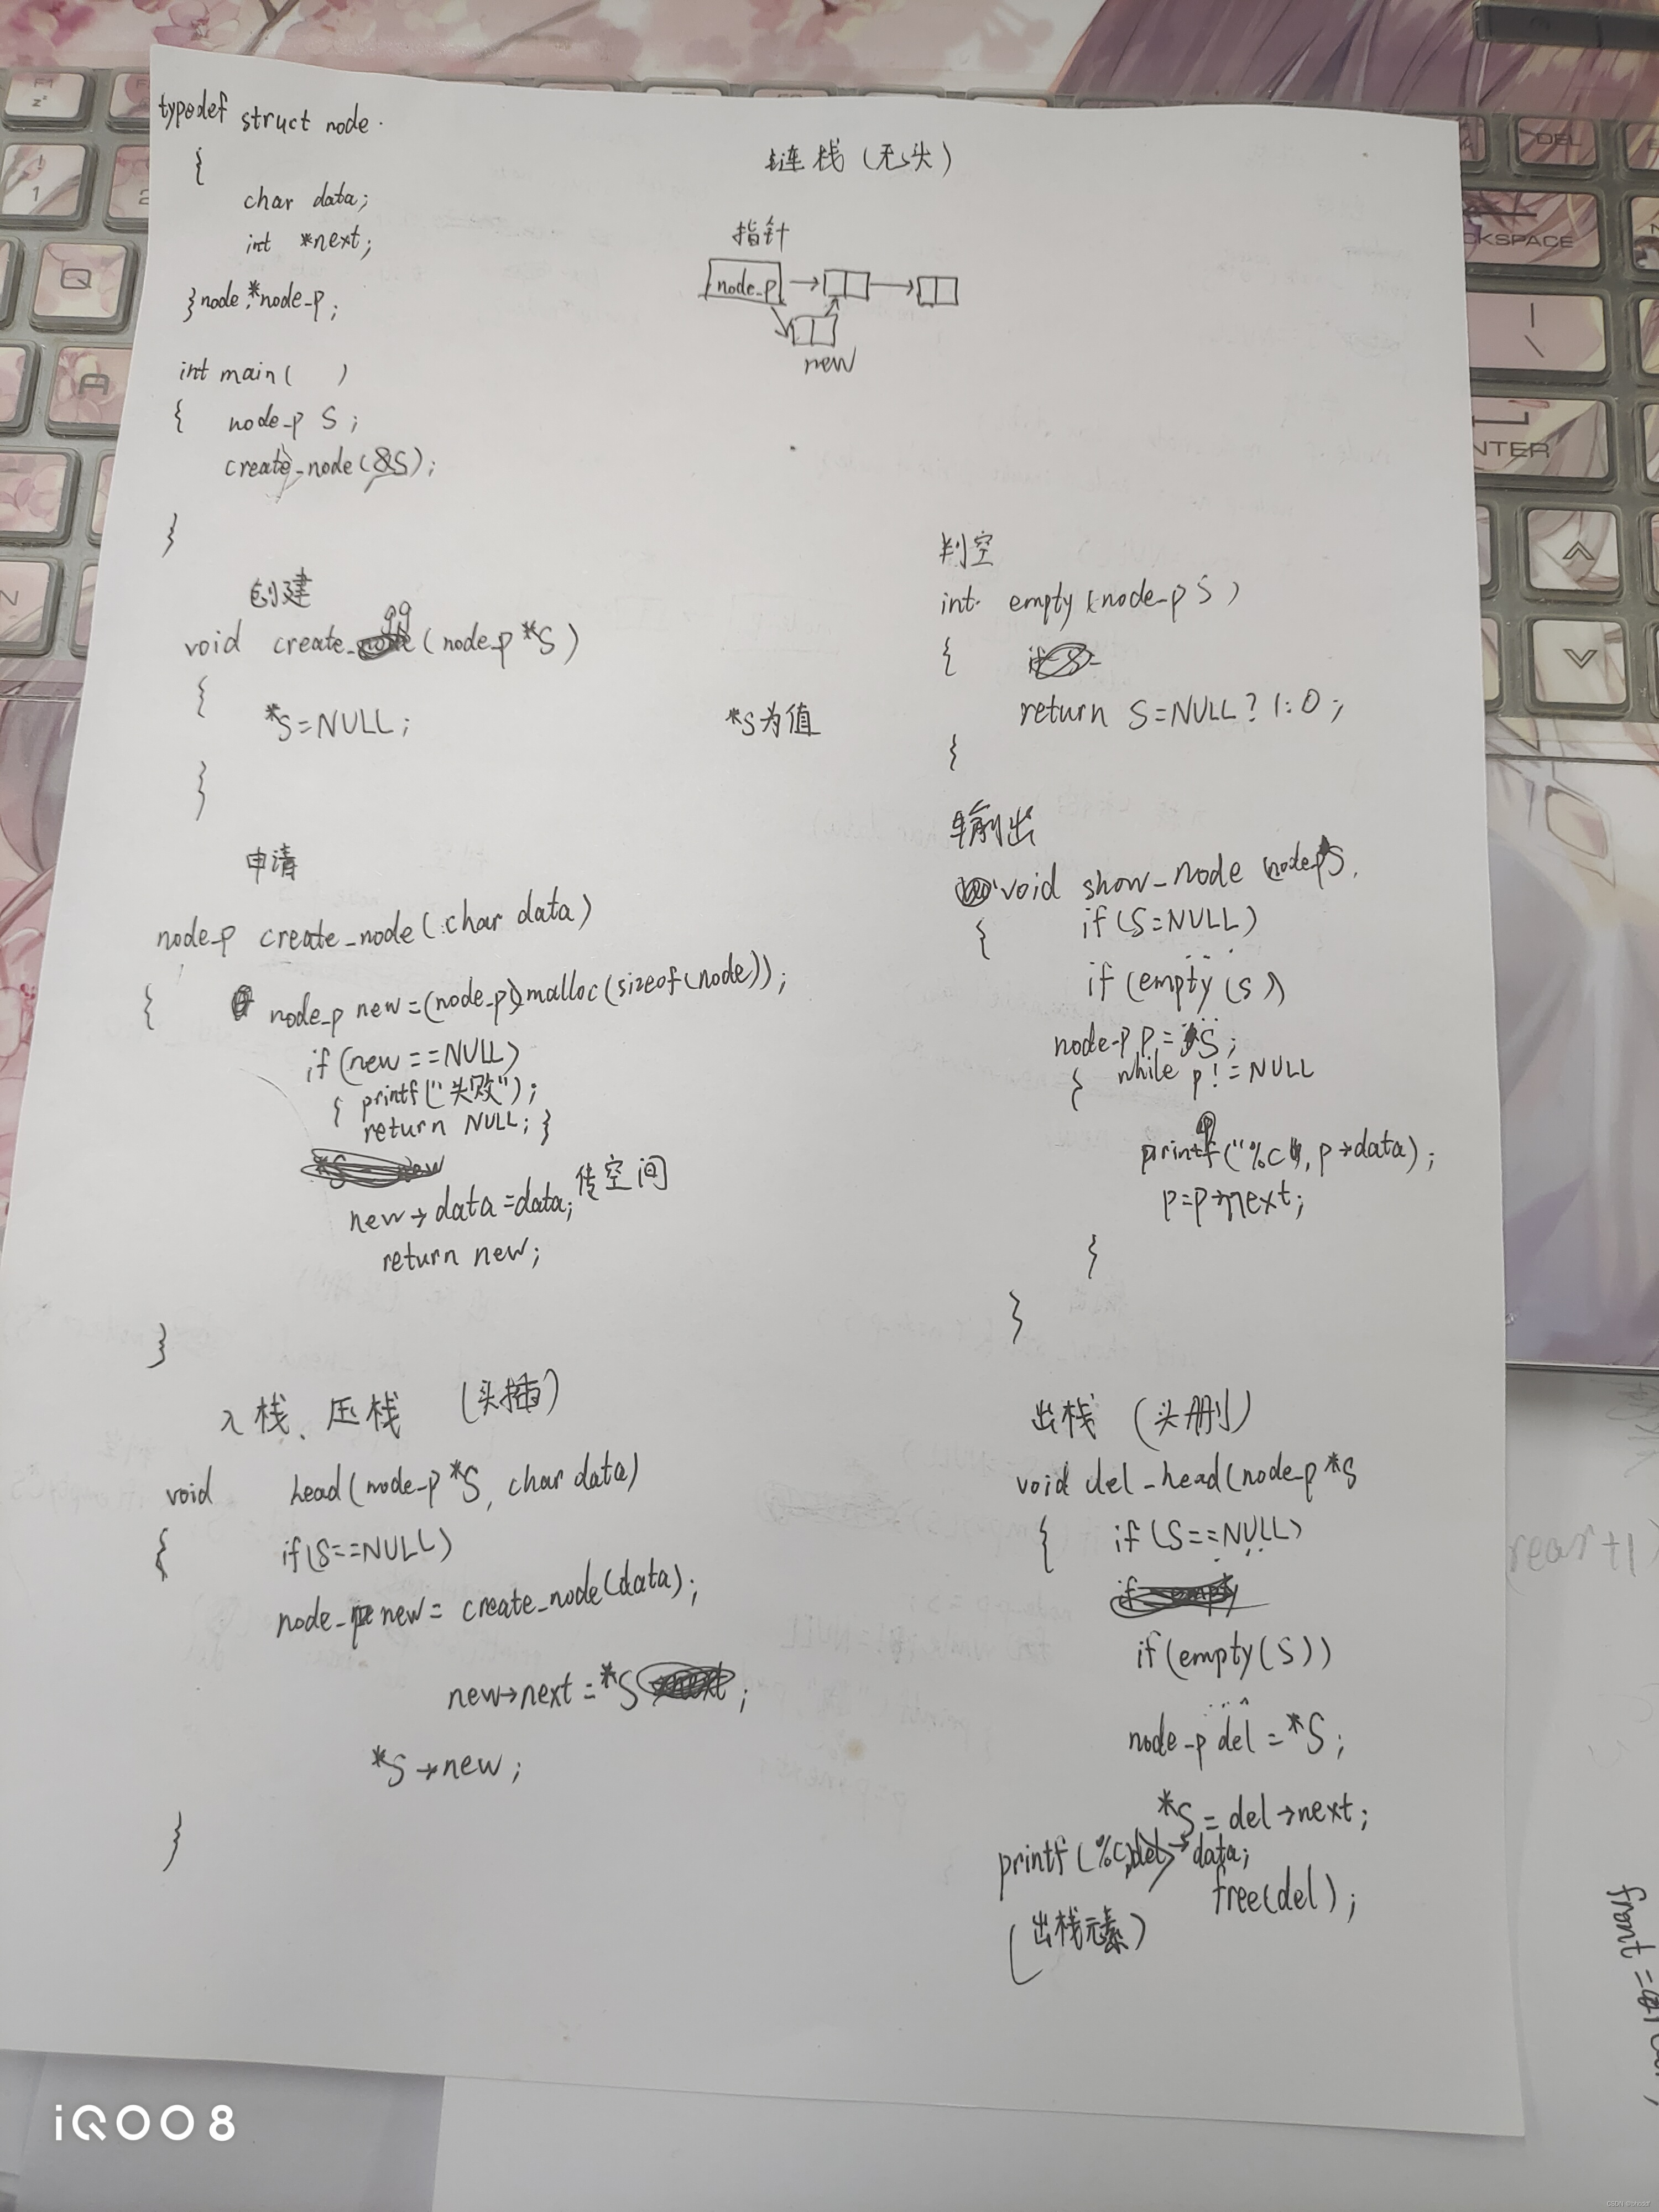 typedef struct node
{
char data;
int *next;
}node,*node_p;
int main( )
{ node_p S;
create_node(&S);
}
链栈(无头)
指针
node_p
new
创建
void create_ (node_p *S)
{
*S=NULL;
}
*S为值
申请
node_p create_node(char data)
{ node_p new=(node_p)malloc(sizeof(node));
if(new==NULL)
{ printf("失败");
return NULL;}
new→data=data; 传空间
return new;
}
入栈、压栈 (头插)
void head(node_p *S, char data)
{ if(S==NULL)
node_p new= create_node(data);
new→next=*S ;
*S→new;
}
判空
int empty(node_p S)
{
return S=NULL?1:0;
}
输出
void show_node node_p S
{ if(S=NULL)
if(empty(S))
node_p p= S;
{ while p!=NULL
printf("%c", p→data);
p=p→next;
}
}
出栈 (头删)
void del_head(node_p *S
{ if(S==NULL)
if(empty(S))
node_p del=*S;
*S=del→next;
printf(%c,del→data;
free(del);
(出栈元素)
rear+1
front=
iQOO 8
F1
z²
!
1
2
Q
A
N
DEL
CKSPACE
NTER